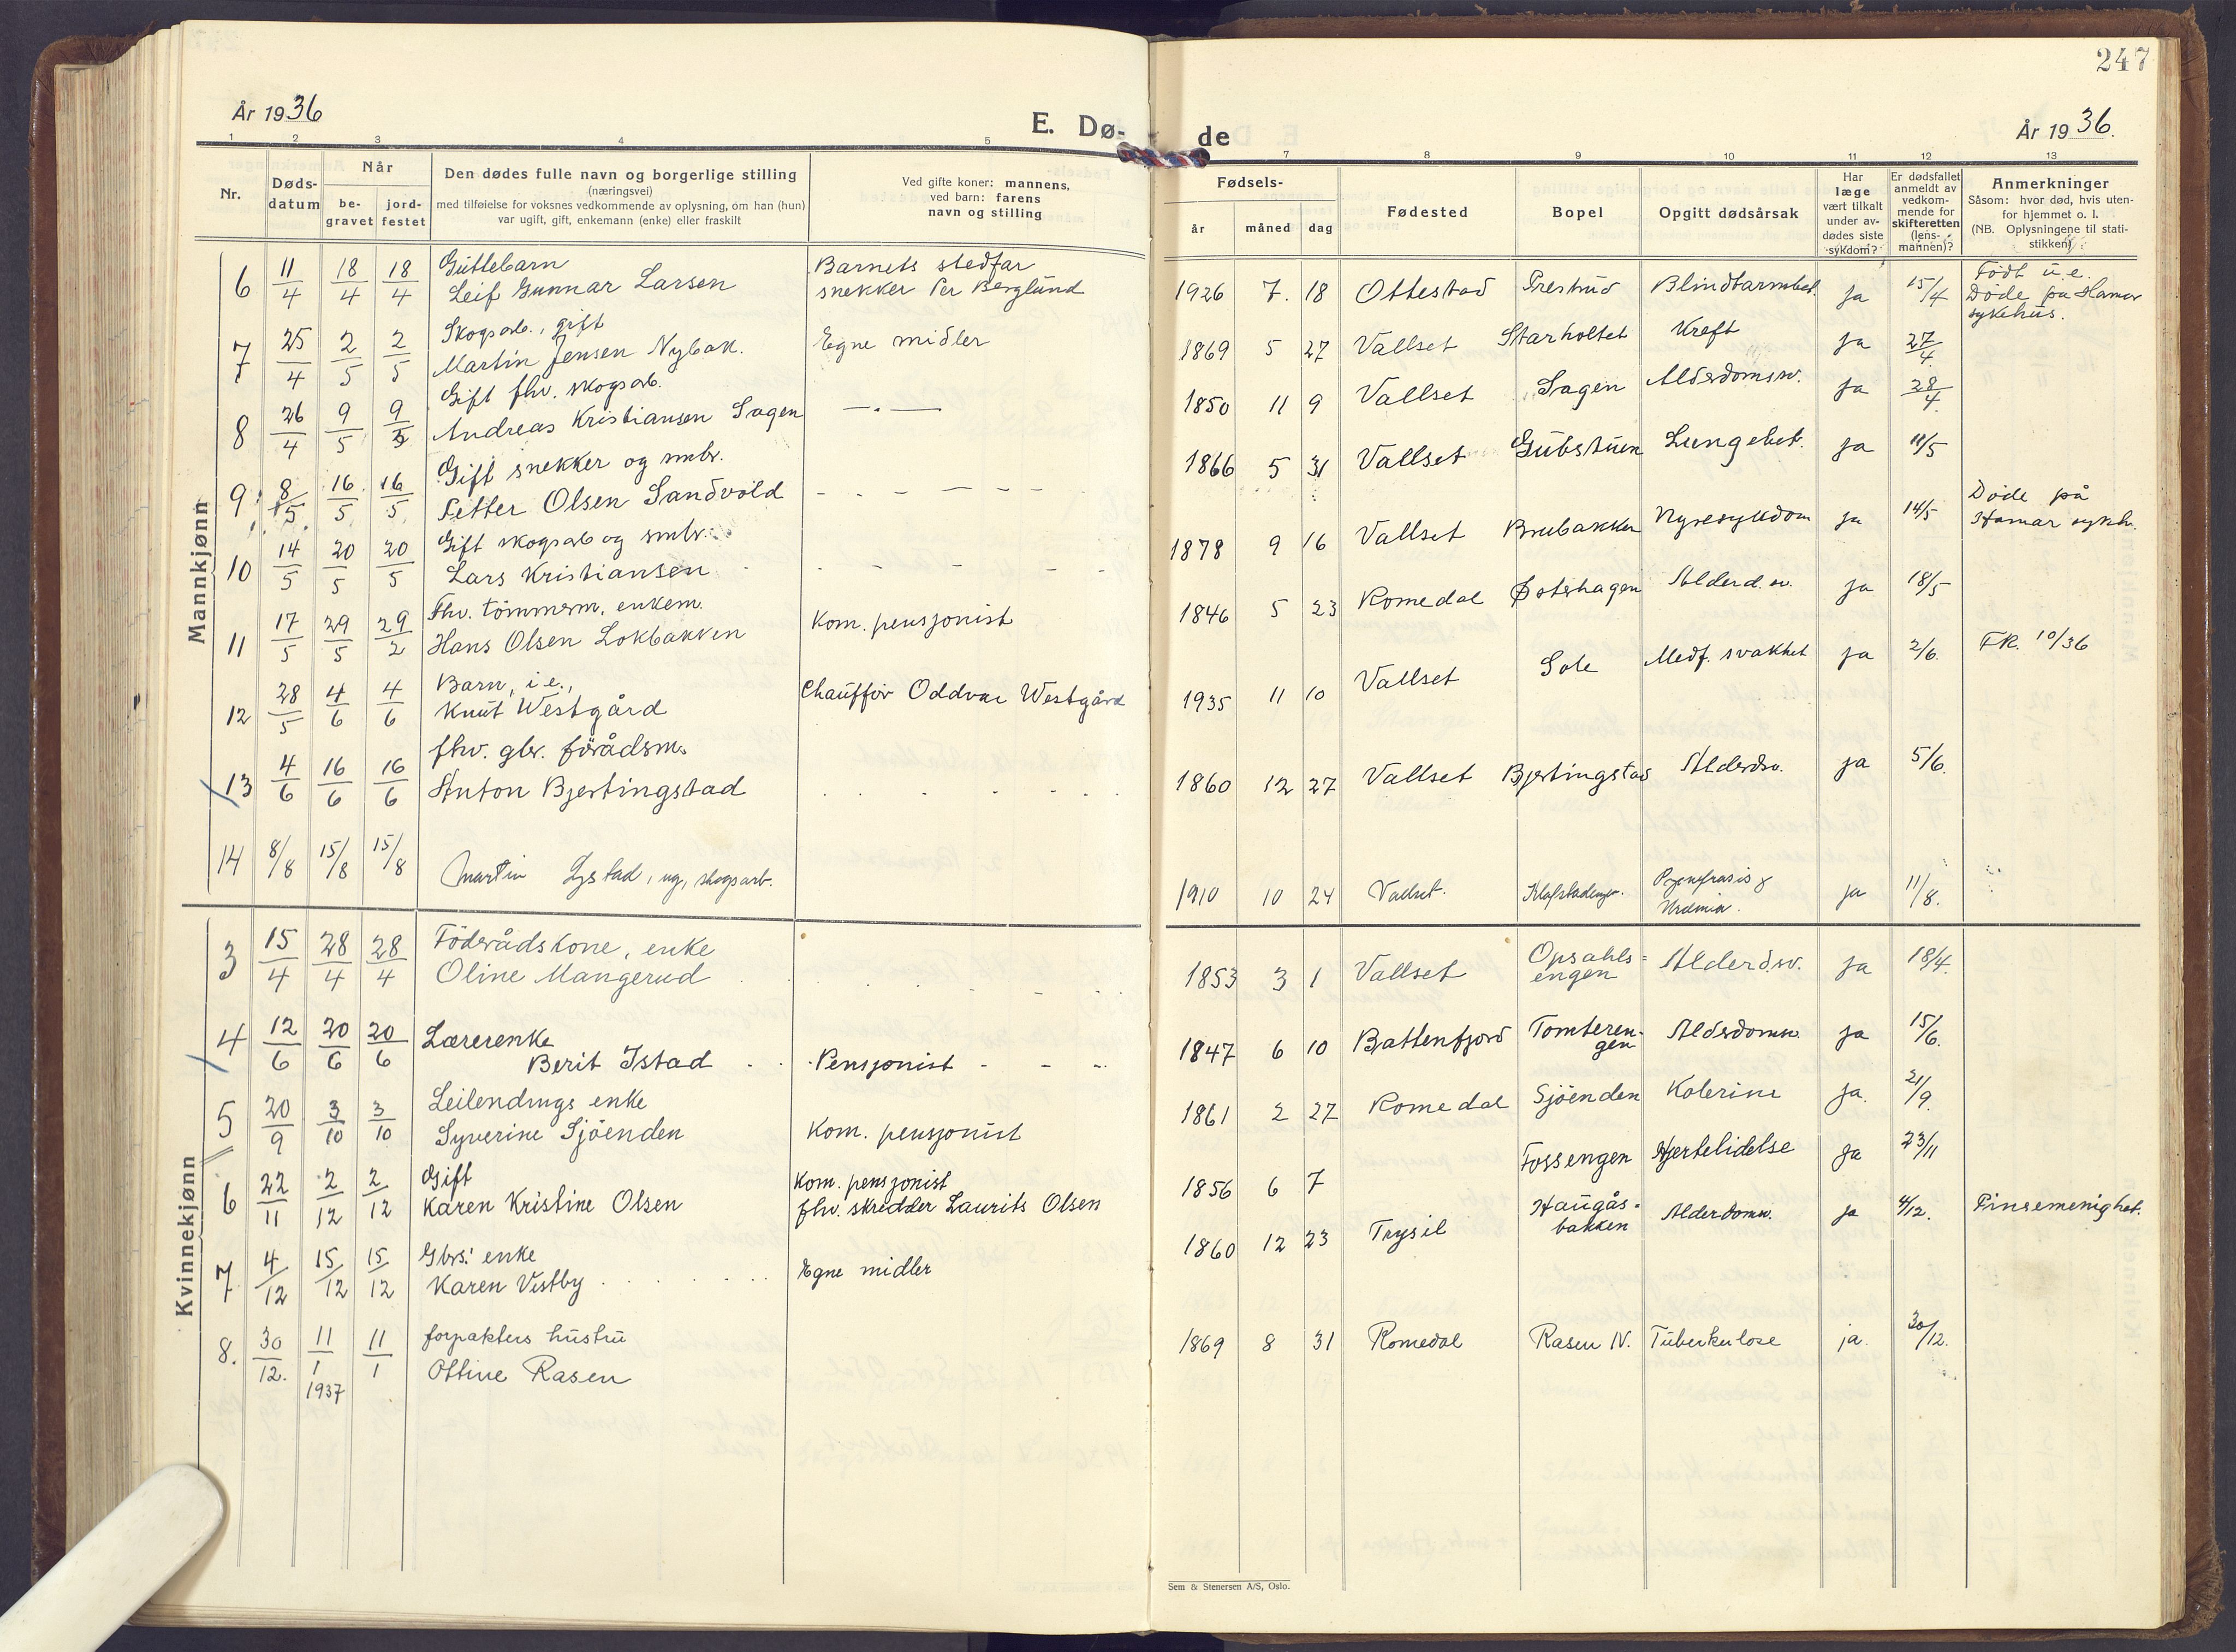 247
År 1936
E. Dø-
de
År 1936.
1 2 3 4 5
7 8 9 10 11 12 13
Nr.
Døds-
datum
Når
be-
gravet
jord-
festet
Den dødes fulle navn og borgerlige stilling
(næringsvei)
med tilføielse for voksnes vedkommende av oplysning, om han (hun)
var ugift, gift, enkemann (enke) eller fraskilt
Ved gifte koner: mannens,
ved barn: farens
navn og stilling
Fødsels-
år måned dag
Fødested
Bopel
Opgitt dødsårsak
Har
læge
vært tilkalt
under av-
dødes siste
sykdom?
Er dødsfallet
anmeldt av
vedkom-
mende for
skifteretten
(lens-
mannen)?
Anmerkninger
Såsom: hvor død, hvis uten-
for hjemmet o. l.
(NB. Oplysningene til stati-
stikken)
Mannkjønn
6 11/4 18/4 18/4 Guttebarn
Leif Gunnar Larsen
Barnets stedfar
snekker Per Berglund
1926 7. 18 Ottestad Prestrud Blindtarmbet. ja 15/4
Født u.e.
Døde på Hamar
sykehus.
7 25/4 2/5 2/5 Skogsarb., gift
Martin Jensen Nybak.
Egne midler
1869 5 27 Vallset Starholtet Kreft ja 27/4
8 26/4 9/5 9/5 Gift fhv. skogsarb.
Andreas Kristiansen Sagen
1850 11 9 Vallset Sagen Alderdomssv. ja 28/4
9 8/5 16/5 16/5 Gift snekker og smbr.
Petter Olsen Sandvold
1866 5 31 Vallset Gubstuen Lungebet. ja 11/5
10 14/5 20/5 20/5 Gift skogsarb og smbr.
Lars Kristiansen
1878 9 16 Vallset Brubakken Nyresykdom ja 14/5
Døde på
Hamar sykh.
11 17/5 29/5 29/2 Fhv. tømmerm. enkem.
Hans Olsen Lokbakken
Kom. pensjonist
1846 5 23 Romedal Østerhagen Alderd.sv. ja 18/5
12 28/5 4/6 4/6 Barn, i e.,
Knut Westgård
Chauffør Oddvar Westgård
1935 11 10 Vallset Sole Medf. svakhet ja 2/6. FR. 10/36
13 4/6 16/6 16/6 fhv. gbr. förådsm.
Anton Bjertingstad
1860 12 27 Vallset Bjertingstad Alderdsv. ja 5/6.
14 8/8 15/8 15/8
Martin Lystad, ug, skogsarb.
1910 10 24 Vallset. ja 11/8.
Kvinnekjønn
3 15/4 28/4 28/4 Föderådskone, enke
Oline Mangerud
1853 3 1 Vallset Opsahls=
engen Alderdsv. ja 18/4.
4 12/6 20/6 20/6 Lærerenke
Berit Istad Pensjonist
1847 6 10 Battenfjord Tomteren-
gen Alderdomsv. ja 15/6.
5 20/9 3/10 3/10 Leilendings enke
Syverine Sjöenden Kom. pensjonist
1861 2 27 Romedal Sjöenden Kolerine ja. 21/9.
6 22/11 2/12 2/12 Gift
Karen Kristine Olsen
Kom. pensjonist
fhv. skredder Laurits Olsen
1856 6 7 Fossengen Hjertelidelse ja 23/11
7 4/12 15/12 15/12 Gbrs: enke
Karen Vestby Egne midler
1860 12 23 Trysil Haugås-
bakken Alderdomsv. ja 4/12. Pinsemenighet.
8. 30/12. 11/1 1937 11/1 forpakters hustru
Ottine Rasen
1869 8 31 Romedal Rasen N. Tuberkulose ja. 30/12.
Sem & Stenersen A/S, Oslo.